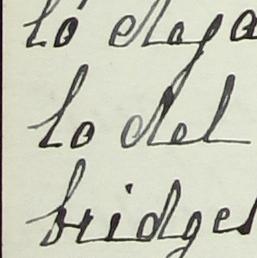 lo deja
lo del
bridges